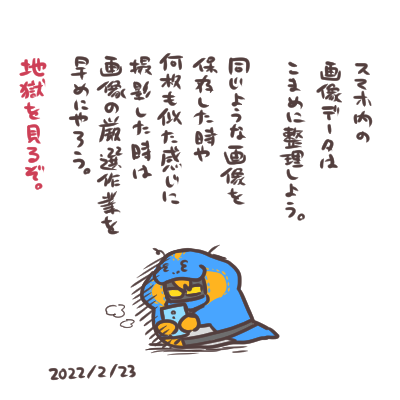 スマホ内の
画像データは
こまめに整理しよう。
同じような画像を
保存した時や
何枚も似た感じに
撮影した時は
画像の厳選作業を
早めにやろう。
地獄を見るぞ。
2022/2/23